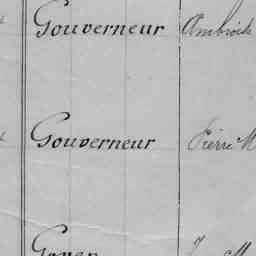 Gouverneur Ambroise
Gouverneur Pierre M